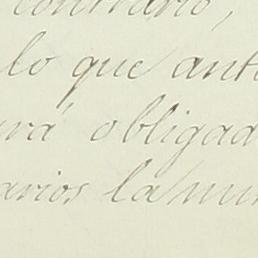 contrario,
lo que ant
rá obligad
arios la mu